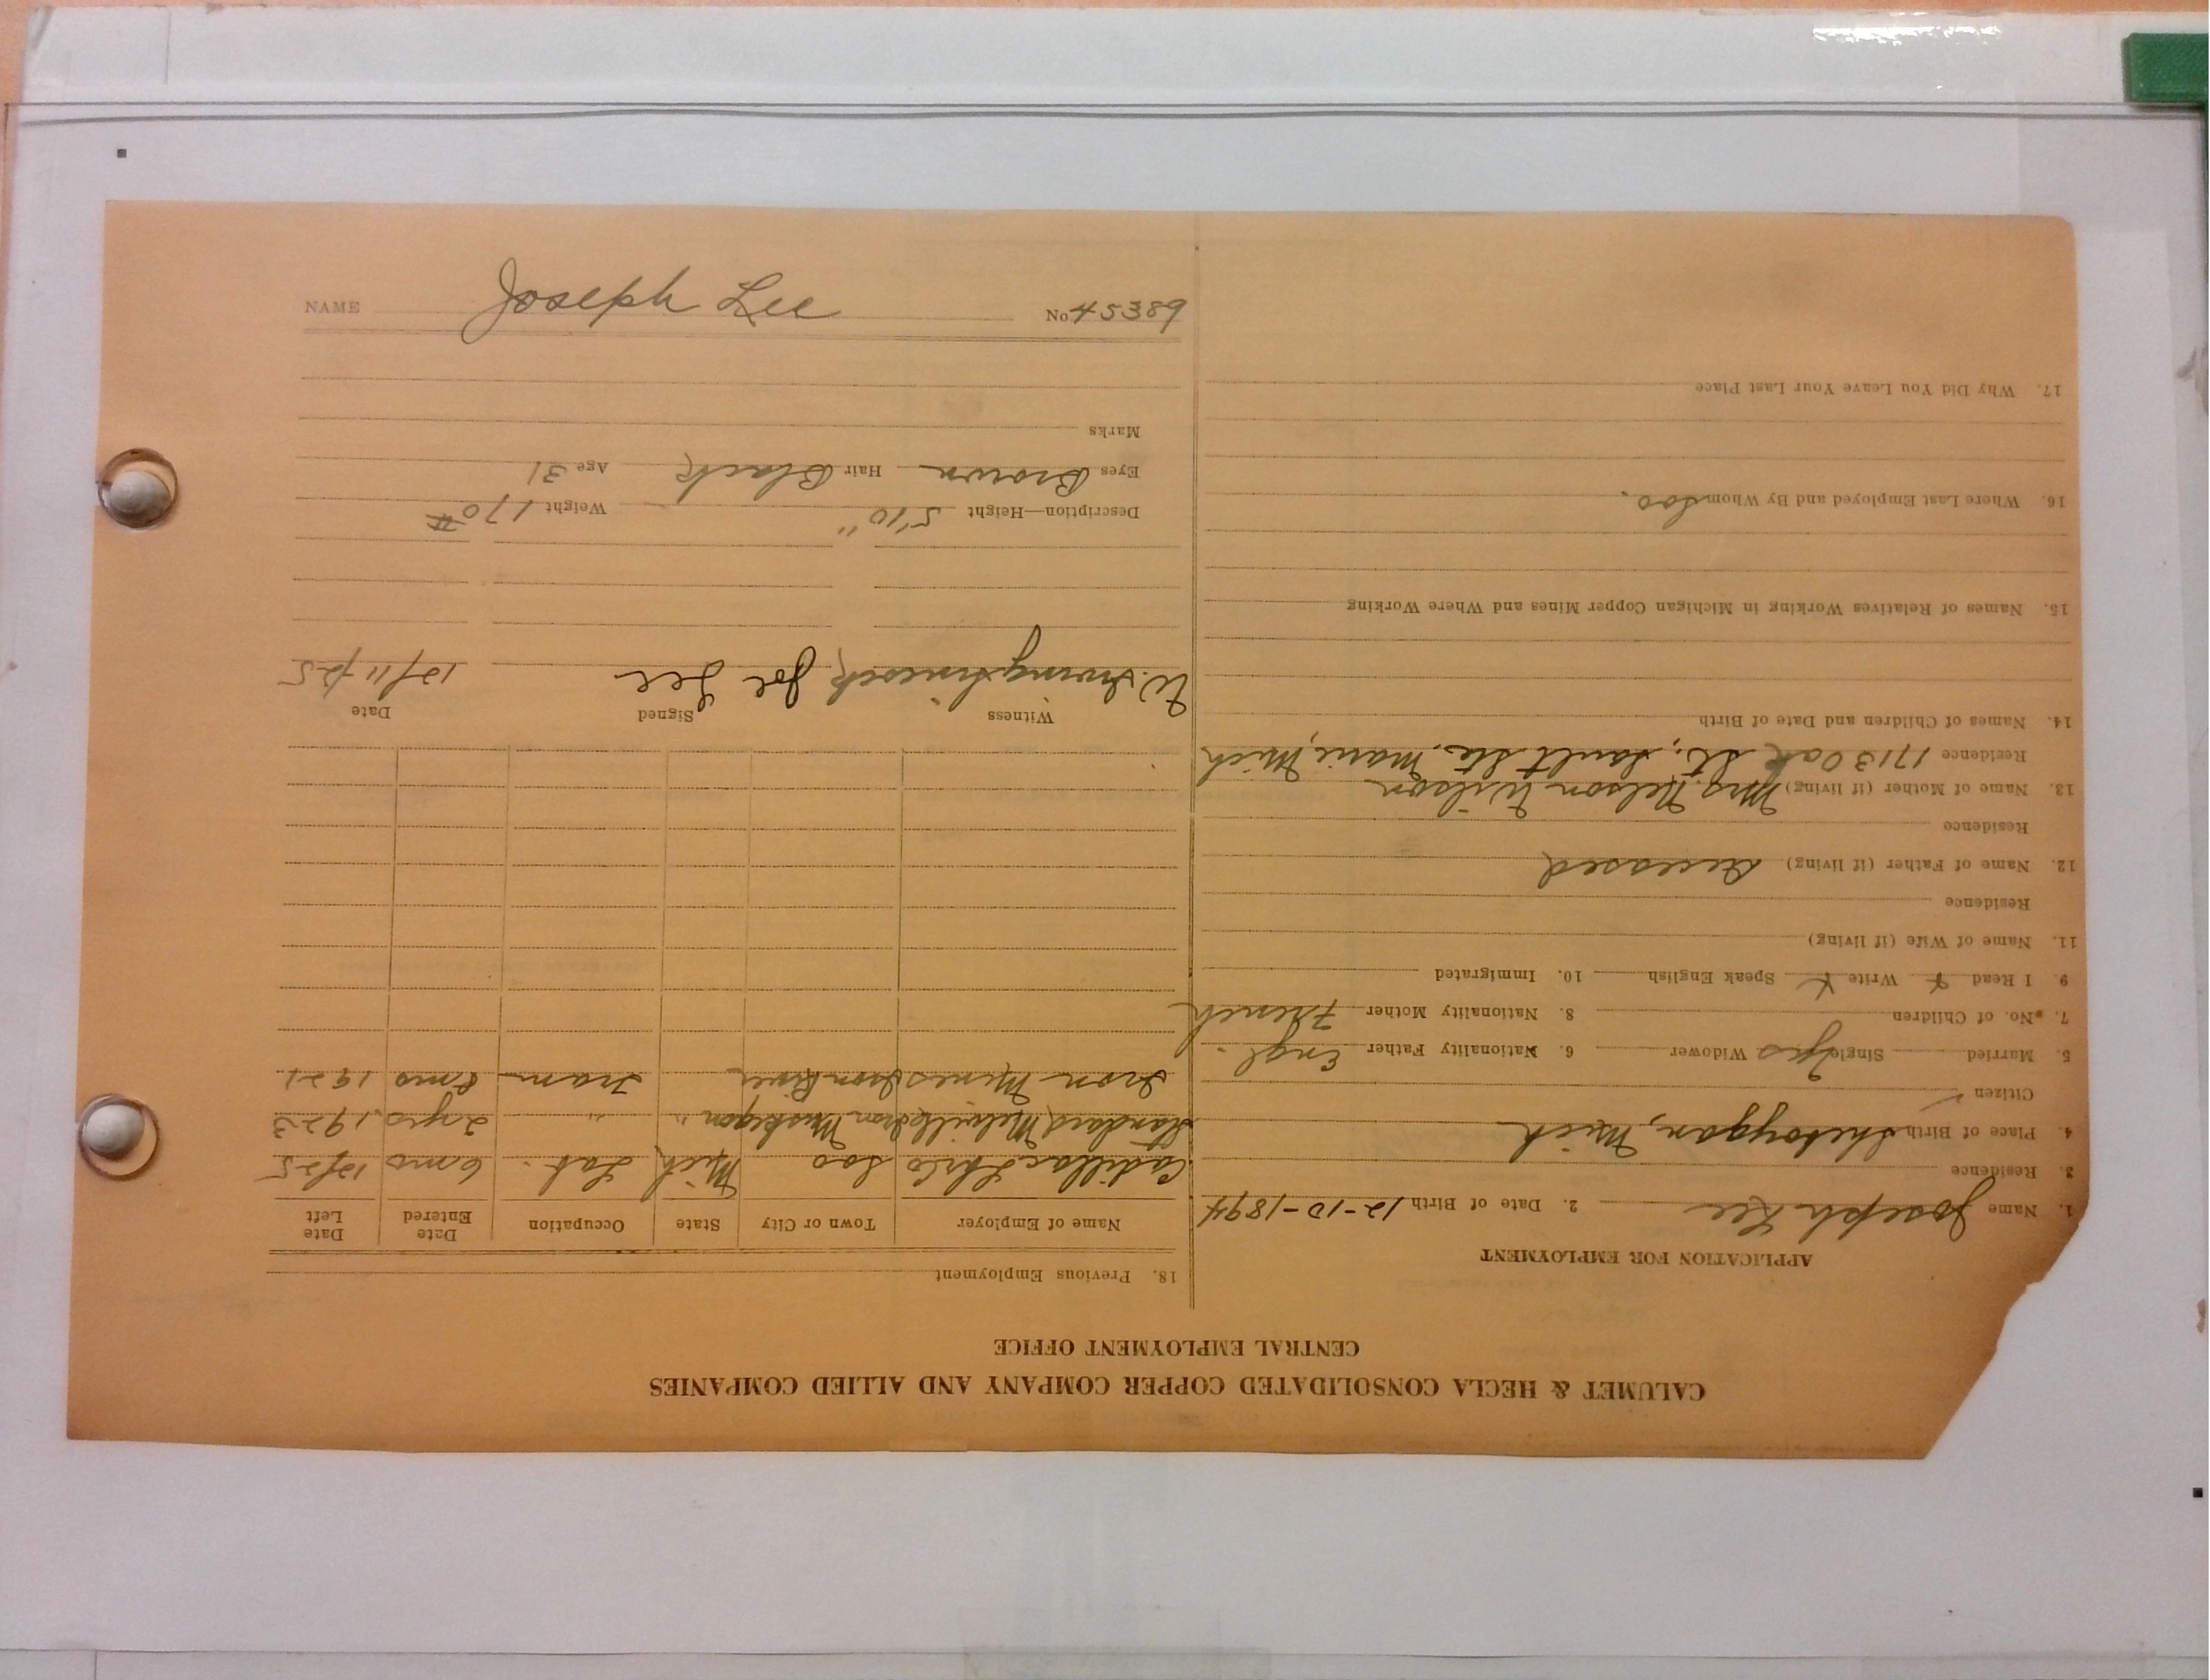 CALUMET & HECLA CONSOLIDATED COPPER COMPANY AND ALLIED COMPANIES
CENTRAL EMPLOYMENT OFFICE
APPLICATION FOR EMPLOYMENT
1. Name Joseph Lee 2. Date of Birth 12-10-1894
3. Residence
4. Place of Birth Sheboygan, Mich
Citizen ✓
5. Married Single yes Widower 6. Nationality Father Engl.
7. No. of Children 8. Nationality Mother French
9. I Read X Write X Speak English 10. Immigrated
11. Name of Wife (if living)
Residence
12. Name of Father (if living) Deceased
Residence
13. Name of Mother (if living) Mrs. Nelson Wilson
Residence 1713 Oak St., Sault Ste. Marie, Mich
14. Names of Children and Date of Birth
15. Names of Relatives Working in Michigan Copper Mines and Where Working
16. Where Last Employed and By Whom Soo.
17. Why Did You Leave Your Last Place
18. Previous Employment
Name of Employer Town or City State Occupation Date Entered Date Left
Cadillac Soo Mich Lab. 6 mo 12/25
Standard Melville Iron Muskegon " " 2 yrs. 1923
Iron Mines Iron River Tram 8 mo 1921
Witness Signed Date
W. Irving Joe Lee 12/11/25
Description—Height 5'10" Weight 170 #
Eyes Brown Hair Black Age 31
Marks
NAME Joseph Lee No 45389